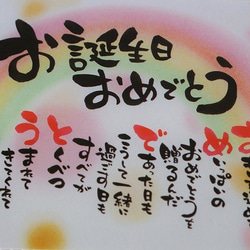 お誕生日
おめでとう
めいっぱいの
おめでとうを
贈るんだ
であった日も
こうして一緒に
過ごす日も
すべてが
とくべつ
うまれて
きてくれて